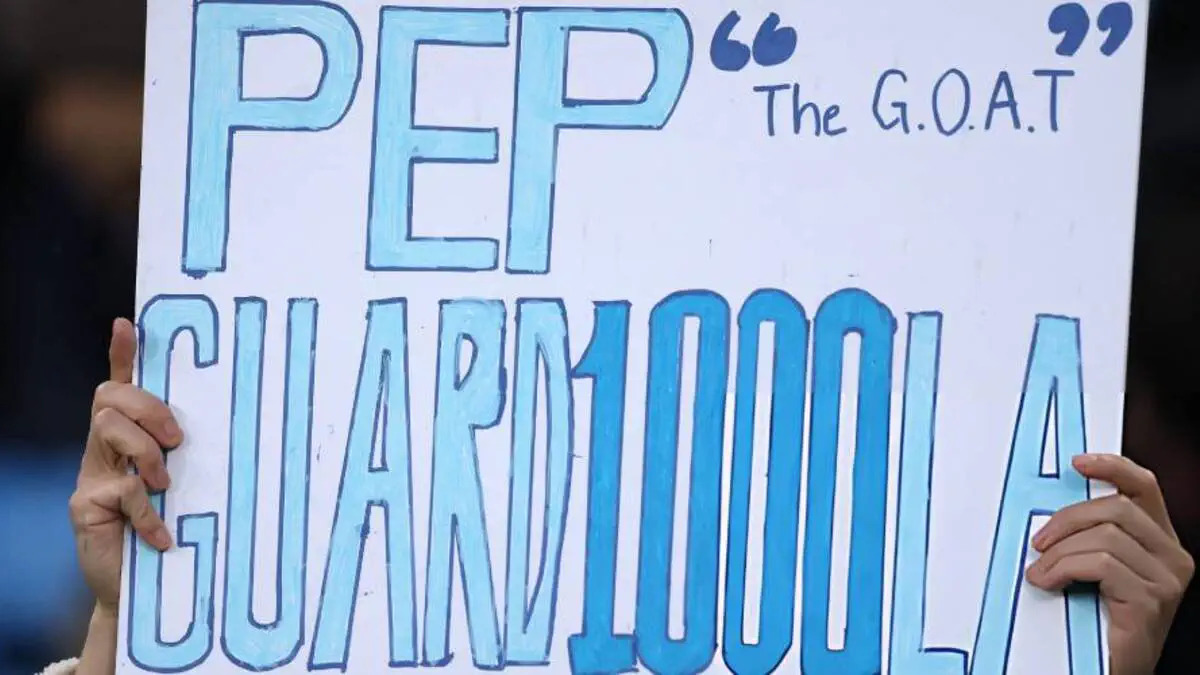 PEP “The G.O.A.T”
GUARD1000LA